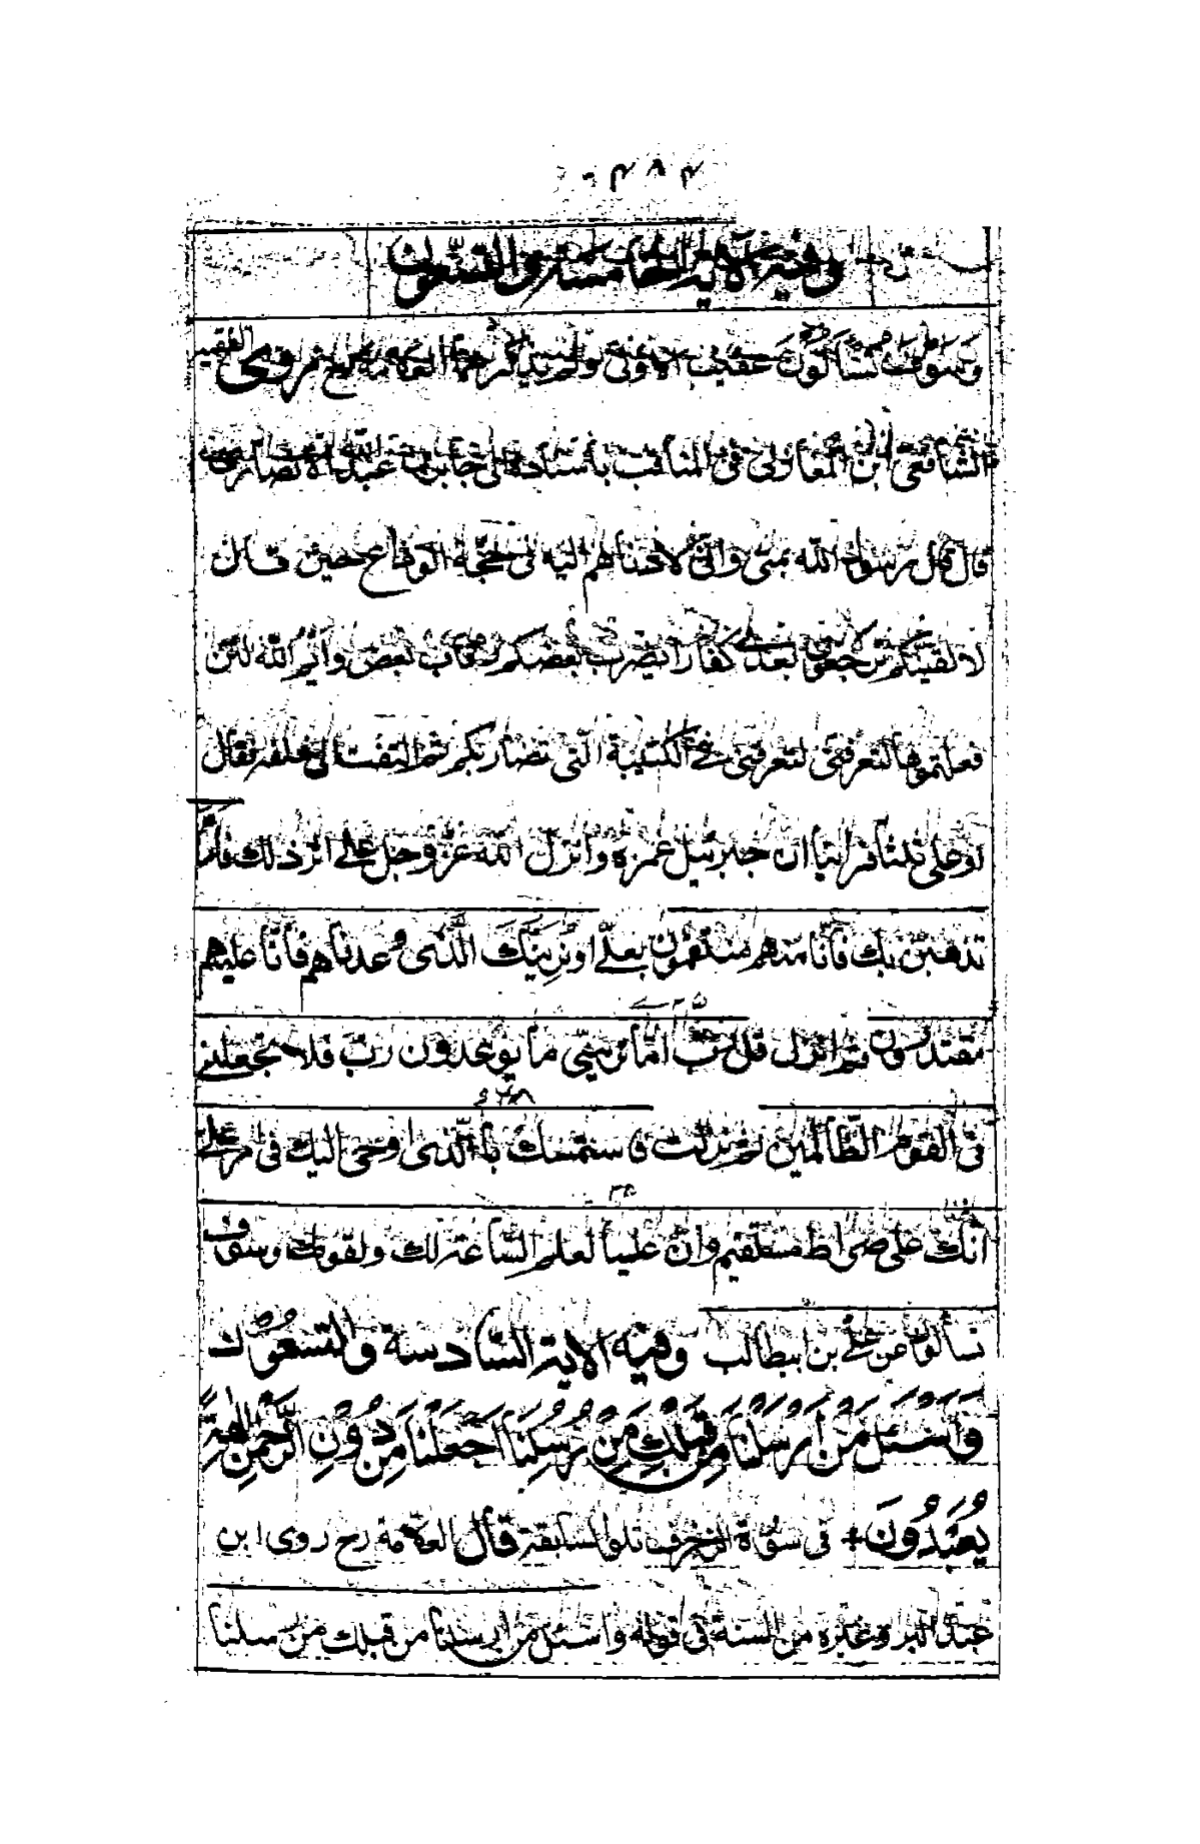 ۴۸۴
وفيه الآية الخامسة والتسعون
وَسَوْفَ تُسْأَلُونَ عقيب الاولى ولم يذكرها العلامة رح روى الفقيه
الشافعى ابن المغازلى فى المناقب باسناده الى جابر بن عبد الله الانصارى
قال قال رسول الله بمنى وانى لادناهم اليه فى حجة الوداع حين قال
لا لفينكم ترجعون بعدى كفارا يضرب بعضكم رقاب بعض وايم الله لئن
فعلتموها لتعرفنى فى الكتيبة التى تضاربكم ثم التفت الى خلفه فقال
او على ثلثا فراينا ان جبرئيل غمزه وانزل الله عز وجل على اثر ذلك فامّا
نذهبنّ بك فانّا منهم منتقمون بعلىّ او نرينّك الّذى وعدناهم فانّا عليهم
مقتدرون ثم انزل قل ربّ امّا ترينّى ما يوعدون ربّ فلا تجعلنى
فى القوم الظّالمين ثم نزلت فاستمسك بالّذى اوحى اليك فى امر على
انّك على صراط مستقيم وانّ عليا لعلم للسّاعة لك ولقومك وسوف
تسألون عن على بن ابيطالب وفيه الاية السّادسة والتسعون
وَاسْئَلْ مَنْ اَرْسَلْنَا مِنْ قَبْلِكَ مِنْ رُسُلِنَا اَجَعَلْنَا مِنْ دُونِ الرَّحْمنِ الِهَةً
يُعْبَدُونَ + فى سورة الزخرف تلو السابقة قال العلامة رح روى ابن
عبد البر وغيره من السنة فى قوله واسئل من ارسلنا من قبلك من رسلنا